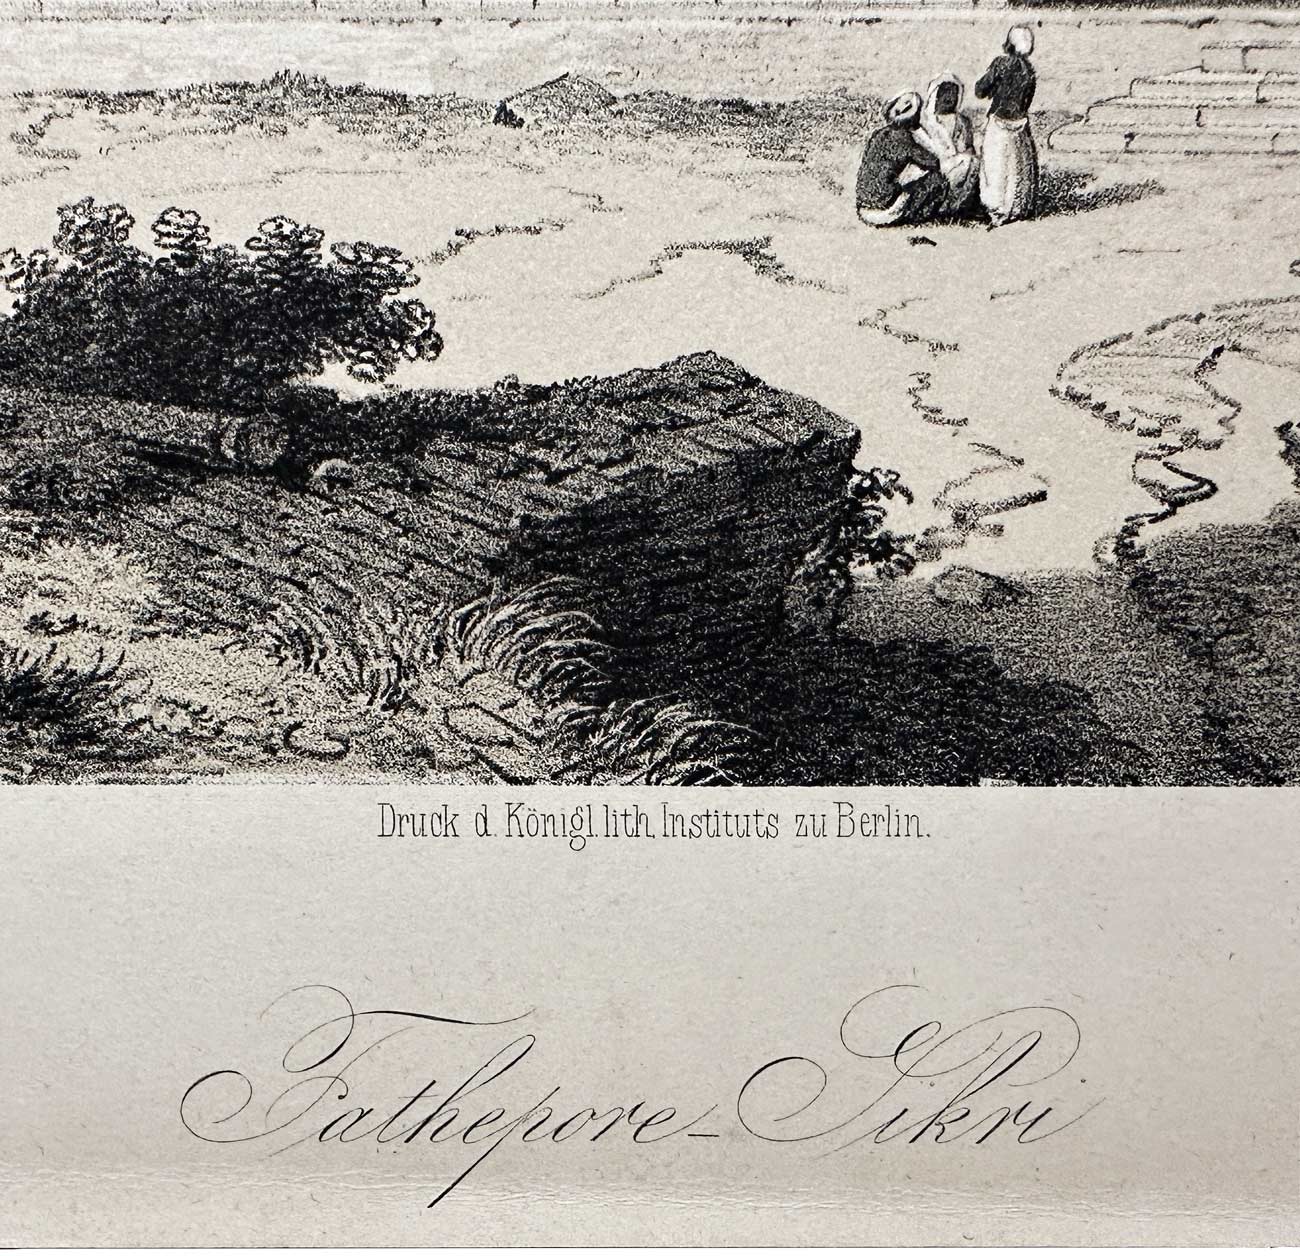 Druck d. Königl. lith. Instituts zu Berlin.
Fathepore-Sikri